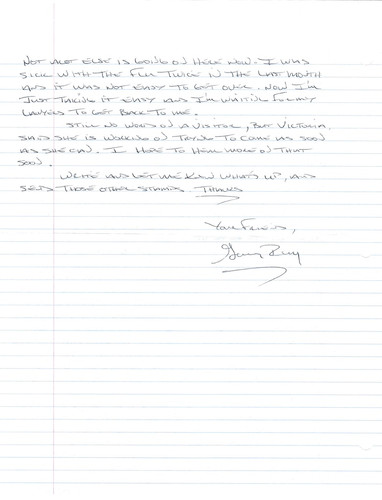 NOT ALOT ELSE IS GOING ON HERE NOW. I WAS
SICK WITH THE FLU TWICE IN THE LAST MONTH
AND IT WAS NOT EASY TO GET OVER. NOW I'M
JUST TAKING IT EASY AND I'M WAITING FOR MY
LAWYERS TO GET BACK TO ME.
STILL NO WORD ON A VISITOR, BUT VICTORIA
SAID SHE IS WORKING ON TRYING TO COME AS SOON
AS SHE CAN. I HOPE TO HEAR MORE ON THAT
SOON.
WRITE AND LET ME KNOW WHAT'S UP, AND
SEND THOSE OTHER STAMPS. THANKS
Your Friend,
Gary